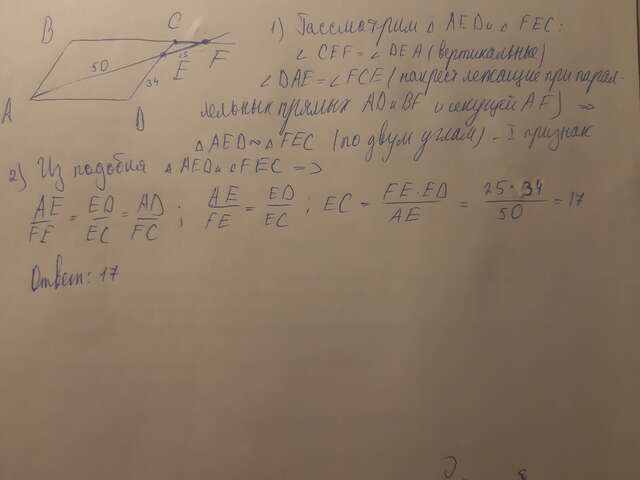 B C
1) Рассмотрим △ AED и △ FEC:
50 25 E F
∠ CEF = ∠ DEA (вертикальные)
34
∠ DAE = ∠ FCE (накрест лежащие при парал-
A D
лельных прямых AD и BF и секущей AF) ⇒
△ AED ~ △ FEC (по двум углам) - I признак
2) Из подобия △ AED и △ FEC ⇒
AE/FE = ED/EC = AD/FC ; AE/FE = ED/EC ; EC = FE·ED/AE = 25·34/50 = 17
Ответ: 17